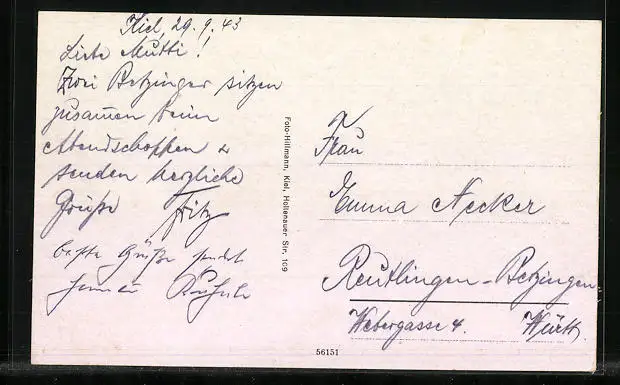 Kiel, 29.9.43
Liebe Mutti!
Zwei Betzinger sitzen
zusammen beim
Abendschoppen u
senden herzliche
Grüße Fritz
beste Grüße sendet
Foto-Hillmann, Kiel, Holtenauer Str. 109
Frau
Emma Necker
Reutlingen-Betzingen
Webergasse 4. Württ.
56151